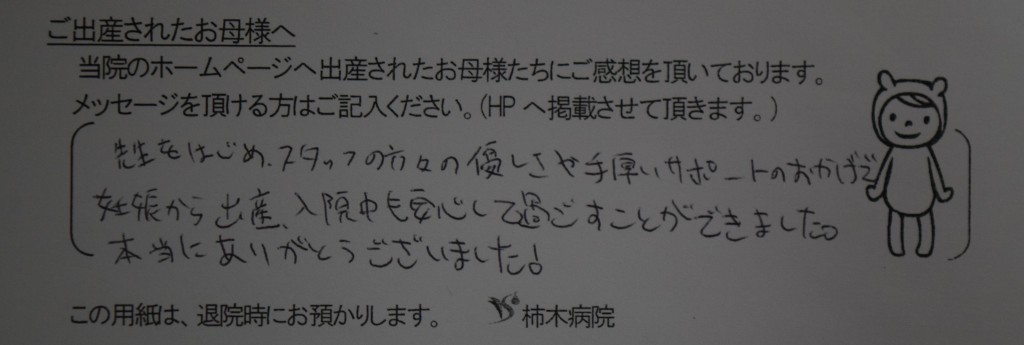 ご出産されたお母様へ
当院のホームページへ出産されたお母様たちにご感想を頂いております。
メッセージを頂ける方はご記入ください。(HPへ掲載させて頂きます。)
先生をはじめ、スタッフの方々の優しさや手厚いサポートのおかげで
妊娠から出産、入院中も安心して過ごすことができました。
本当にありがとうございました!
この用紙は、退院時にお預かりします。 柿木病院